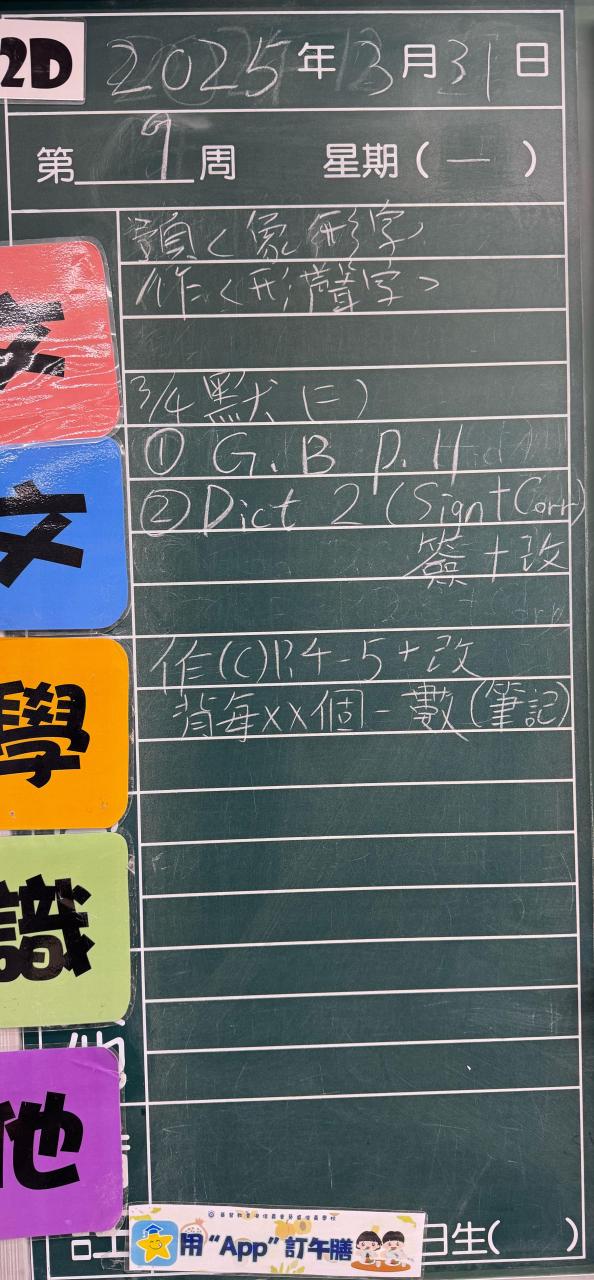 2D
2025年3月31日
第9周 星期(一)
預<象形字>
作<形聲字>
3/4默(二)
文
① G.B P. H
② Dict 2 (Sign+Corr)
簽+改
文
作(C)P.4-5+改
背每xx個一數(筆記)
學
識
他
基督教香港信義會葵盛信義學校
用“App”訂午膳
日生( )